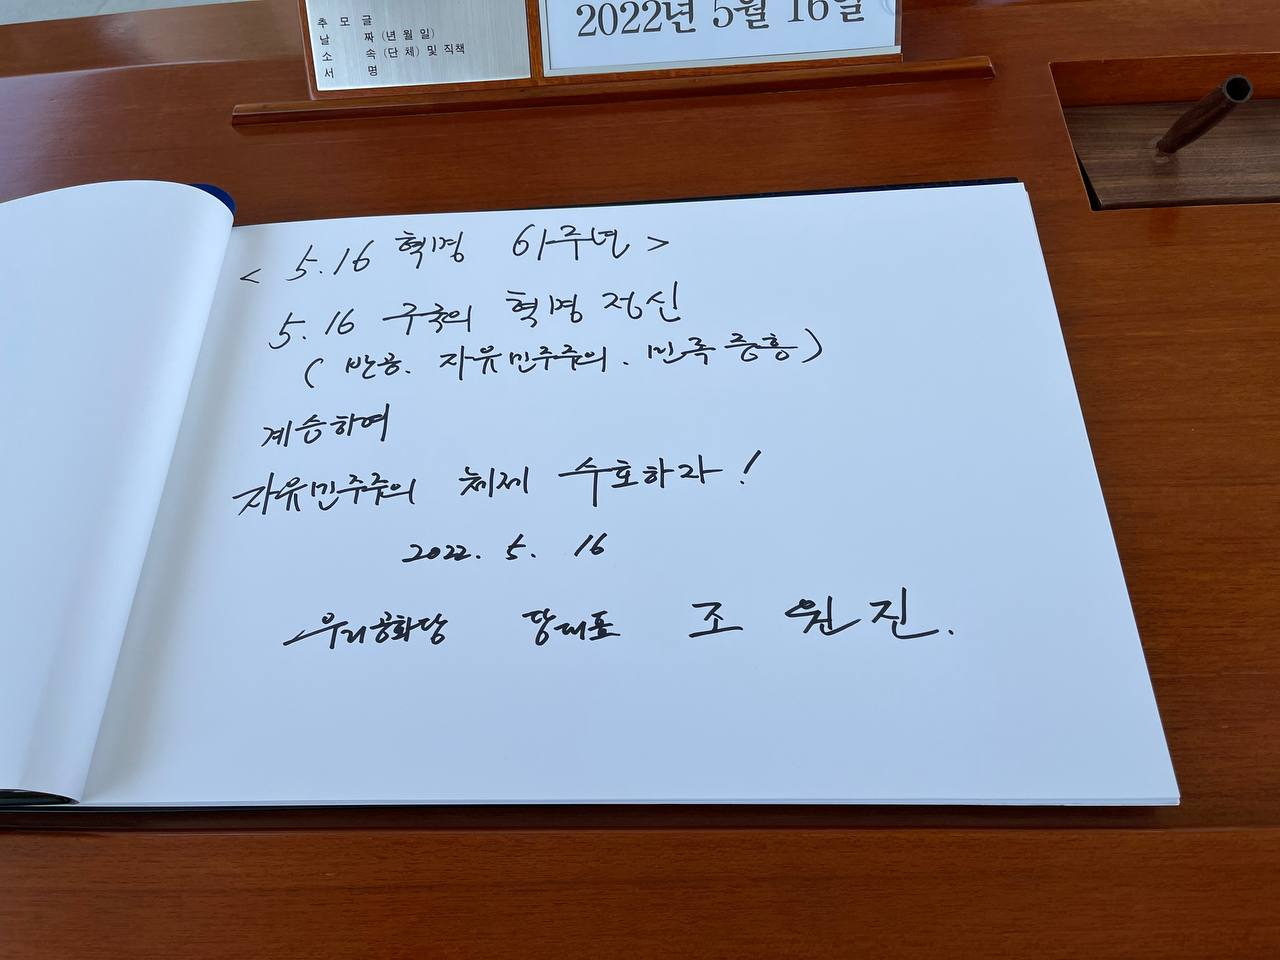 추 모 글
날 짜 (년 월 일)
소 속 (단 체) 및 직책
서 명
2022년 5월 16일
< 5.16 혁명 61주년 >
5.16 구국의 혁명 정신
( 반공. 자유민주주의. 민족 중흥 )
계승하여
자유민주주의 체제 수호하자!
2022. 5. 16
우리공화당 당대표 조 원 진.